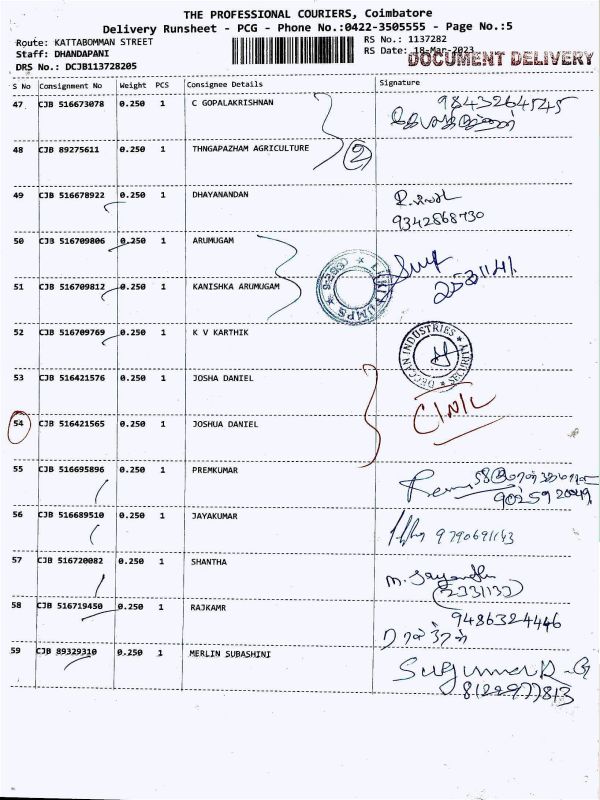 THE PROFESSIONAL COURIERS, Coimbatore
Delivery Runsheet - PCG - Phone No.:0422-3505555 - Page No.:5
Route: KATTABOMMAN STREET
RS No.: 1137282
Staff: DHANDAPANI
RS Date: 18-Mar-2023
DOCUMENT DELIVERY
DRS No.: DCJB113728205
S No Consignment No Weight PCS Consignee Details Signature
47 CJB 516673078 0.250 1 C GOPALAKRISHNAN
48 CJB 89275611 0.250 1 THNGAPAZHAM AGRICULTURE
2
49 CJB 516678922 0.250 1 DHAYANANDAN
9342868730
50 CJB 516709806 0.250 1 ARUMUGAM
51 CJB 516709812 0.250 1 KANISHKA ARUMUGAM
52 CJB 516709769 0.250 1 K V KARTHIK
DECCAN INDUSTRIES
53 CJB 516421576 0.250 1 JOSHA DANIEL
54 CJB 516421565 0.250 1 JOSHUA DANIEL
55 CJB 516695896 0.250 1 PREMKUMAR
56 CJB 516689510 0.250 1 JAYAKUMAR
9790691143
57 CJB 516720082 0.250 1 SHANTHA
58 CJB 516719450 0.250 1 RAJKAMR
9486324446
59 CJB 89329310 0.250 1 MERLIN SUBASHINI
Sugumar R-G
8122977813